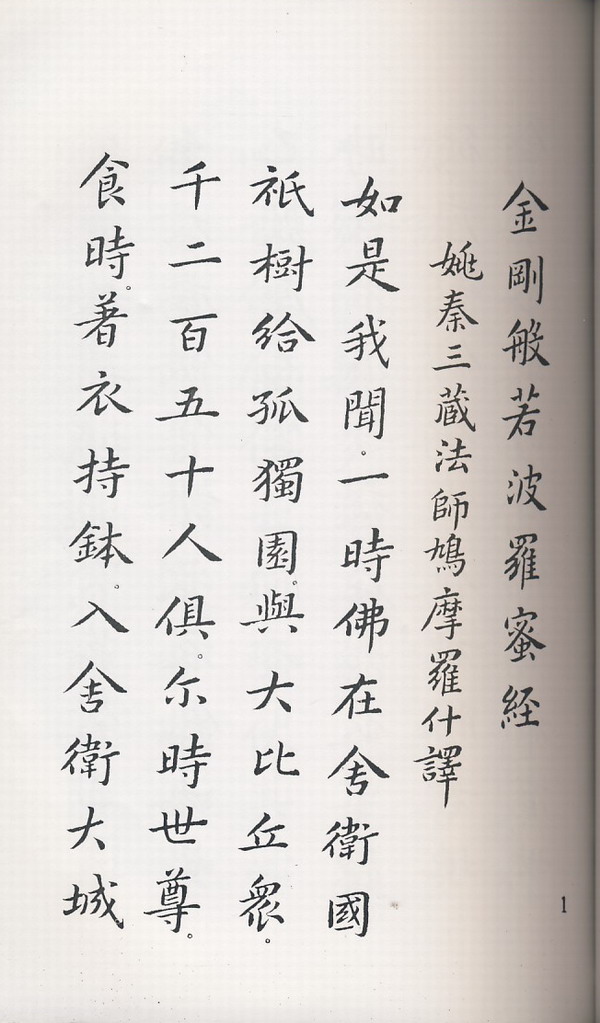 金剛般若波羅蜜經
姚秦三藏法師鳩摩羅什譯
如是我聞。一時佛在舍衛國
祇樹給孤獨園。與大比丘眾。
千二百五十人俱。尒時世尊。
食時。著衣持鉢。入舍衛大城
1